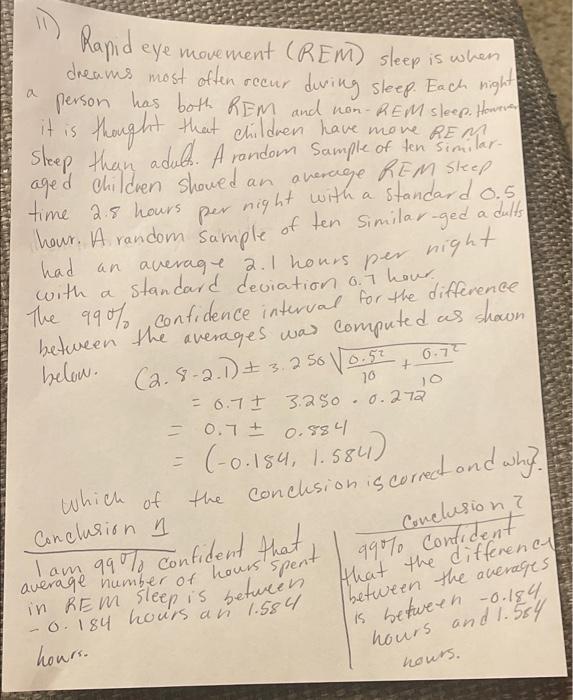 11) Rapid eye movement (REM) sleep is when
dreams most often occur during sleep. Each night
a person has both REM and non-REM sleep. However
it is thought that children have more REM
sleep than adults. A random sample of ten similar-
aged children showed an average REM sleep
time 2.8 hours per night with a standard 0.5
hour. A random sample of ten similar-ged adults
had an average 2.1 hours per night
with a standard deviation 0.7 hour.
The 99% confidence interval for the difference
between the averages was computed as shown
below. (2.8-2.1) ± 3.250 √ 0.5²/10 + 0.7²/10
= 0.7 ± 3.250 · 0.272
= 0.7 ± 0.884
= (-0.184, 1.584)
Which of the conclusion is correct and why?
Conclusion 1
I am 99% confident that
average number of hours spent
in REM sleep is between
-0.184 hours an 1.584
hours.
Conclusion 2
99% confident
that the difference
between the averages
is between -0.184
hours and 1.584
hours.